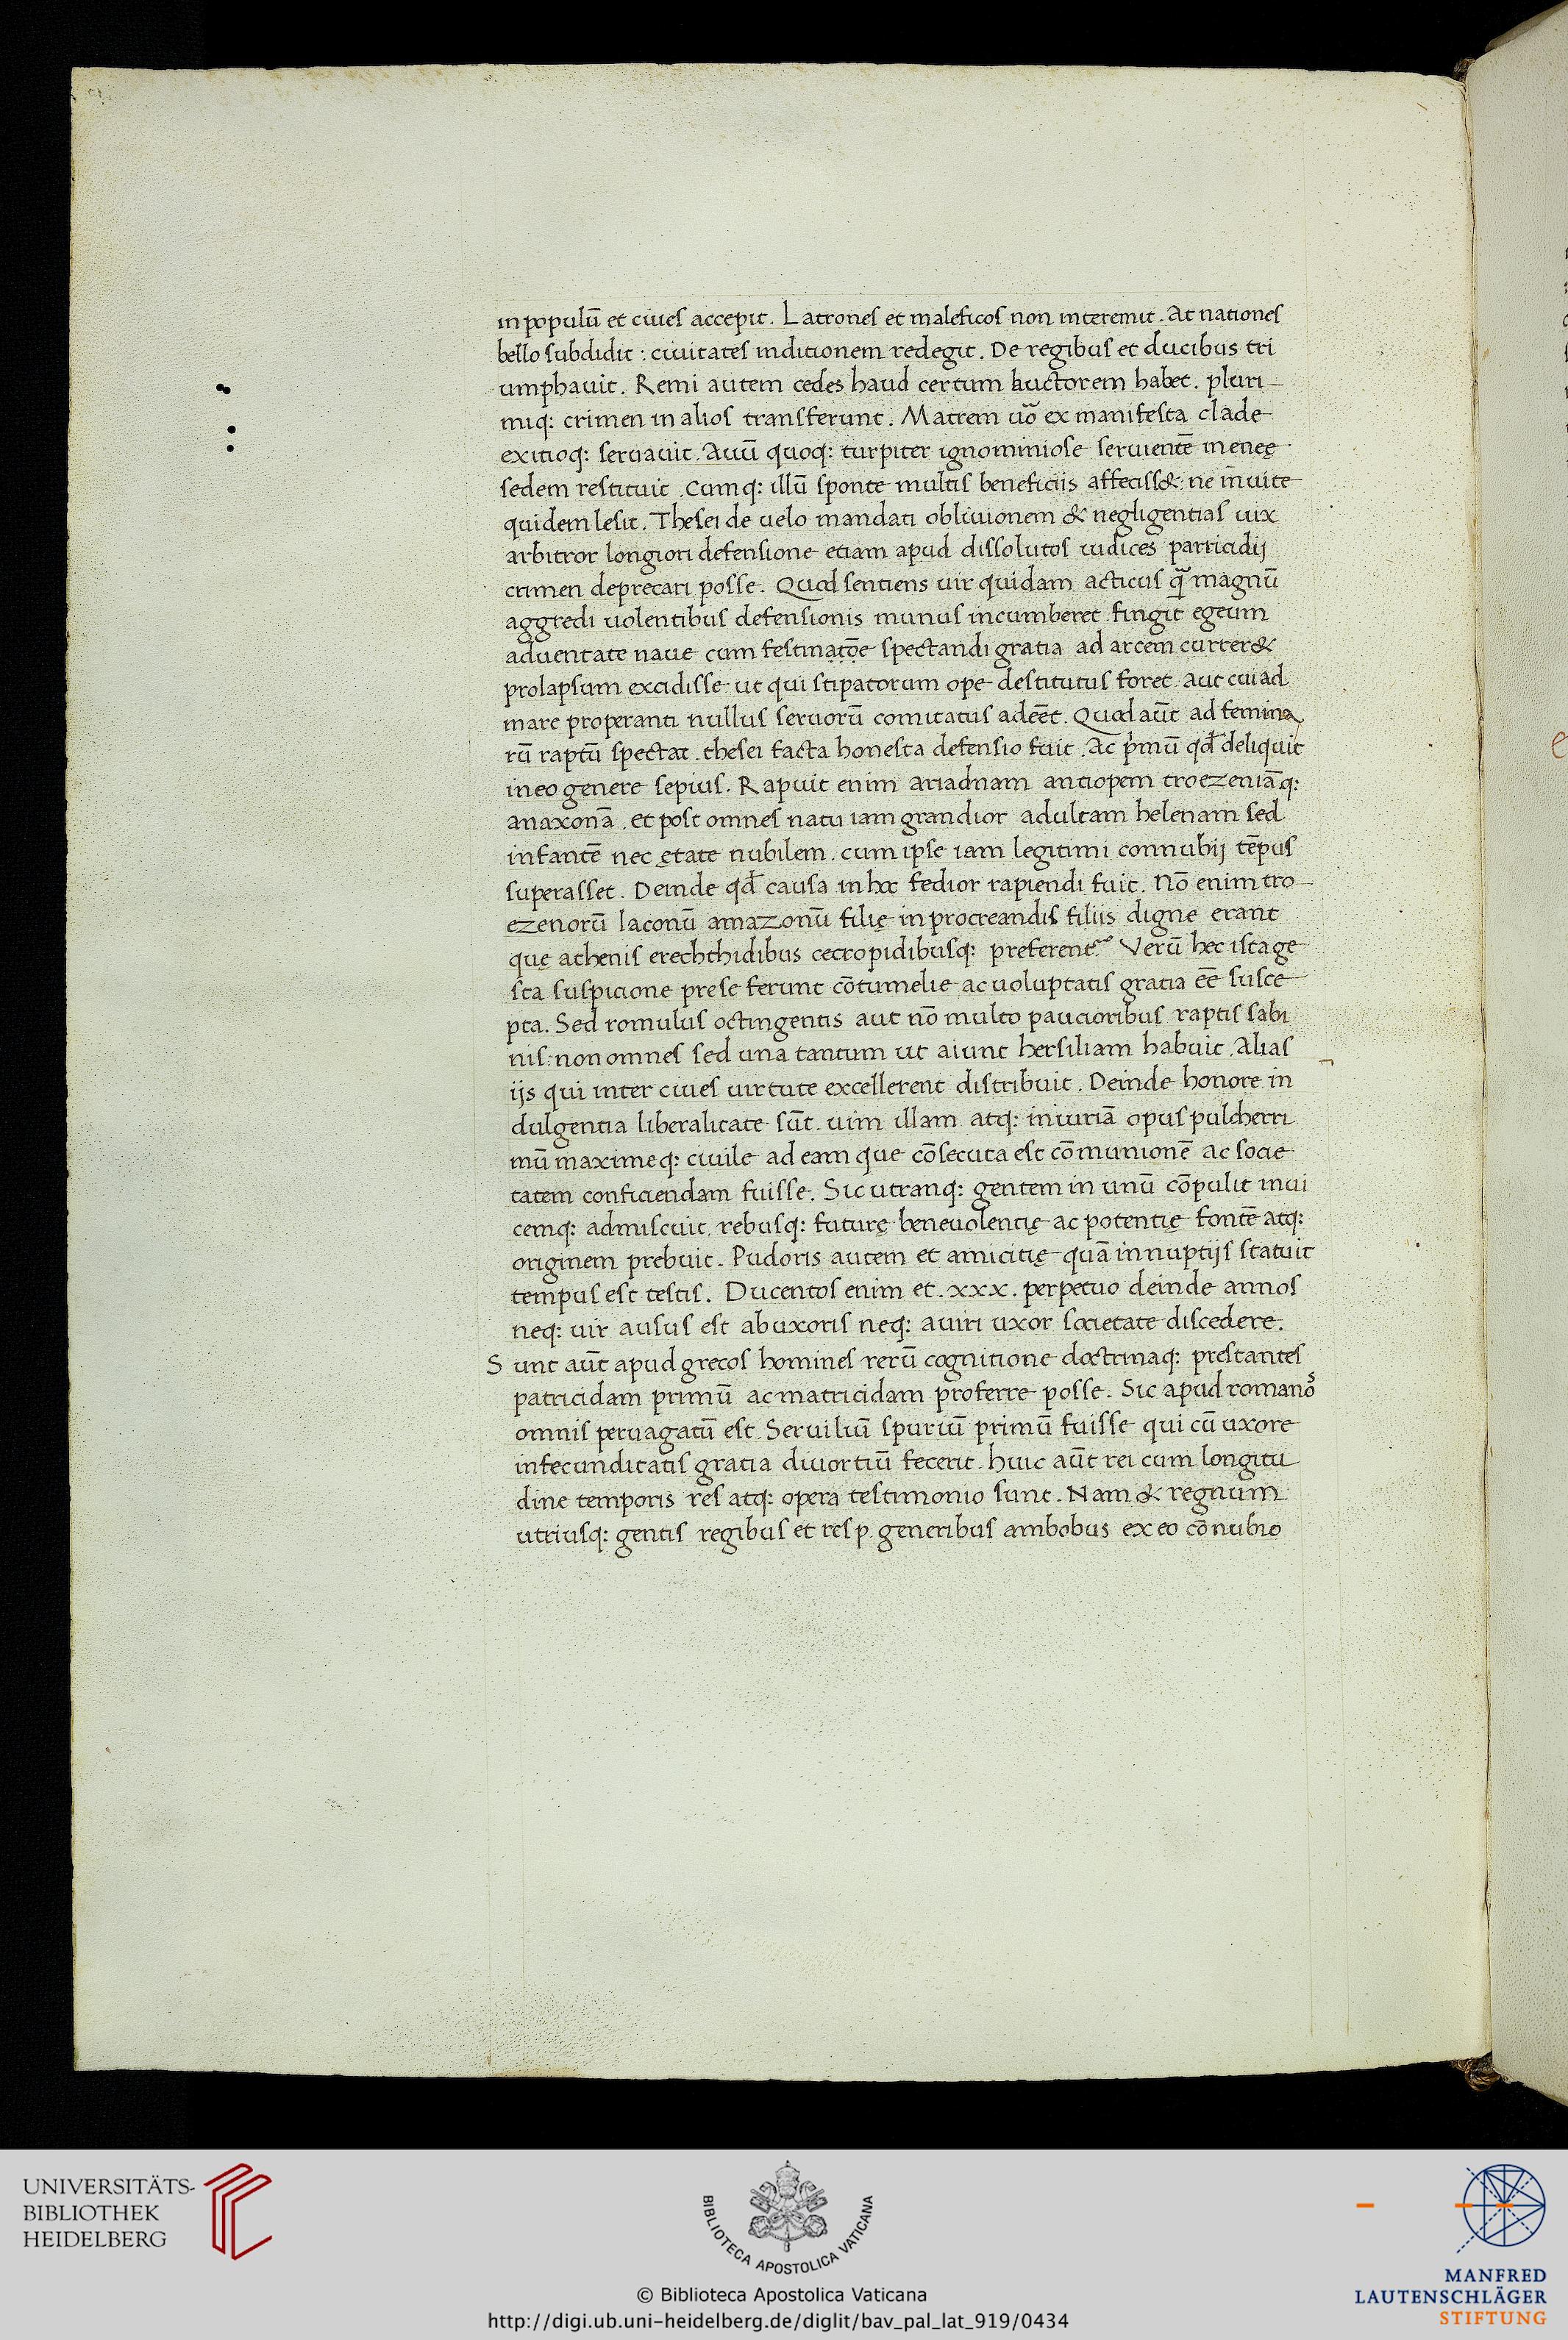 in populū et ciues accepit. Latrones et maleficos non interemit. At nationes
bello subdidit : ciuitates inditionem redegit. De regibus et ducibus tri
umphauit. Remi autem cedes haud certum auctorem habet. pluri-
miq: crimen in alios transferunt. Matrem uoᷓ ex manifesta clade
exitioq: seruauit. Auū quoq: turpiter ignominiose seruientē in eneę
sedem restituit. Cumq: illū sponte multis beneficiis affeciss&: ne inuite
quidem lesit. Thesei de uelo mandati obliuionem & negligentias uix
arbitror longiori defensione etiam apud dissolutos iudices parricidij
crimen deprecari posse. Quod sentiens uir quidam acticus qᷓ magnū
aggredi uolentibus defensionis munus incumberet. fingit egeum
aduentate naue cum festinatōe spectandi gratia ad arcem currer&
prolapsum excidisse ut qui stipatorum ope destitutus foret. aut cui ad
mare properanti nullus seruorū comitatus adeēt. Quod aūt ad femina
rū raptū spectat. thesei facta honesta defensio fuit. Ac pͥmū qd̄ deliquit
in eo genere sepius. Rapuit enim ariadnam antiopem troezeniāq:
anaxonā. et post omnes natu iam grandior adultam helenam sed
infantē nec ętate nubilem. cum ipse iam legitimi connubij tēpus
superasset. Deinde qd̄ causa in hoc fedior rapiendi fuit. Nō enim tro-
ezenorū laconū amazonū filię in procreandis filiis digne erant
quę athenis erechthidibus cecropidibusq: preferent᷑ Verū hec ista ge
sta suspicione prese ferunt cōtumelie ac uoluptatis gratia eē susce
pta. Sed romulus octingentis aut nō multo paucioribus raptis sabi
nis: non omnes sed una tantum ut aiunt hersiliam habuit. Alias
ijs qui inter ciues uirtute excellerent distribuit. Deinde honore in
dulgentia liberalitate sūt. uim illam atq: iniuriā opus pulcherri
mū maximeq: ciuile ad eam que cōsecuta est cōmunionē ac socie
tatem conficiendam fuisse. Sic utranq: gentem in unū cōpulit inui
cemq: admiscuit. rebusq: futurę beneuolentię ac potentię fontē atq:
originem prebuit. Pudoris autem et amicitię quā in nuptijs statuit
tempus est testis. Ducentos enim et. xxx. perpetuo deinde annos
neq: uir ausus est ab uxoris neq: a uiri uxor societate discedere.
S unt aūt apud grecos homines rerū cognitione doctrinaq: prestantes
patricidam primū ac matricidam proferre posse. Sic apud romanos
omnis peruagatū est. Seruiliū spuriū primū fuisse qui cū uxore
infecunditatis gratia diuortiū fecerit. huic aūt rei cum longitu
dine temporis res atq: opera testimonio sunt. Nam & regnum
utriusq: gentis regibus et resp. generibus ambobus ex eo cōnubio
UNIVERSITÄTS-
BIBLIOTHEK
HEIDELBERG
BIBLIOTECA APOSTOLICA VATICANA
© Biblioteca Apostolica Vaticana
http://digi.ub.uni-heidelberg.de/diglit/bav_pal_lat_919/0434
MANFRED
LAUTENSCHLÄGER
STIFTUNG